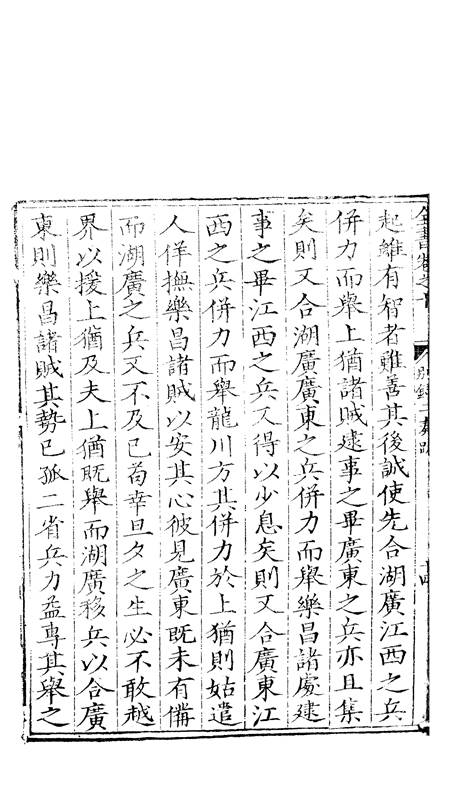 全書卷之十
別錄二 奏疏
起雖有智者難善其後誠使先合湖廣江西之兵
併力而舉上猶諸賊逮事之畢廣東之兵亦且集
矣則又合湖廣廣東之兵併力而舉樂昌諸處逮
事之畢江西之兵又得以少息矣則又合廣東江
西之兵併力而舉龍川方其併力於上猶則姑遣
人佯撫樂昌諸賊以安其心彼見廣東既未有備
而湖廣之兵又不及已苟幸旦夕之生必不敢越
界以援上猶及夫上猶既舉而湖廣移兵以合廣
東則樂昌諸賊其勢已孤二省兵力益專其舉之